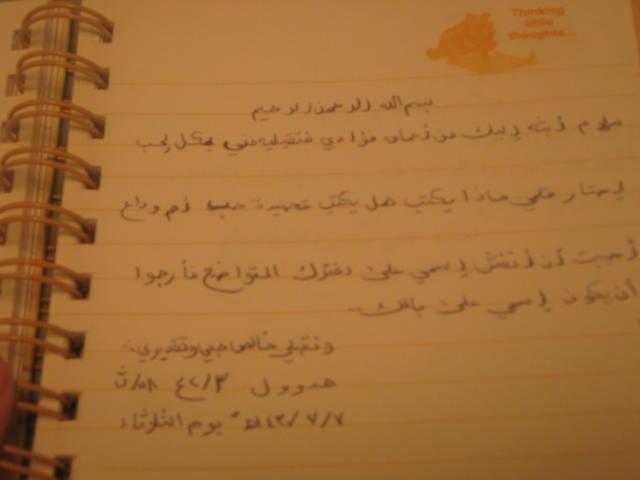 Thinking
little
thoughts...
بسم الله الرحمن الرحيم
سلام أبثه إليك من أعماق فؤادي فتقبليه مني بكل حب
إحتار قلمي ماذا يكتب هل يكتب قصيدة حب أم وداع
أحببت أن أنقش إسمي على دفترك المتواضع فأرجوا
أن يكون إسمي على بالك..
وتقبلي خالص حبي وتقديري..
هدوول ٤٢/٣
٧/٧/١٤٣٠هـ يوم الثلاثاء